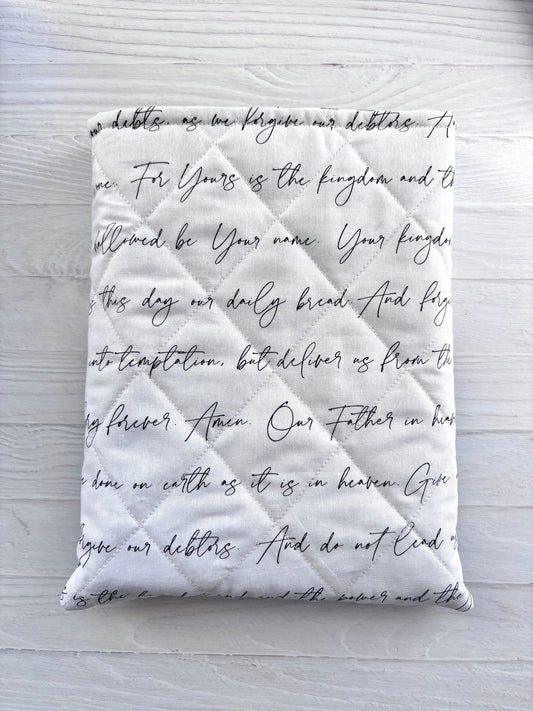 our debts, as we forgive our debtors. A
me. For Yours is the kingdom and th
allowed be Your name. Your kingdo
s this day our daily bread. And forgi
into temptation, but deliver us from the
ry forever. Amen. Our Father in heav
e done on earth as it is in heaven. Give
rgive our debtors. And do not lead u
is the and the power and the